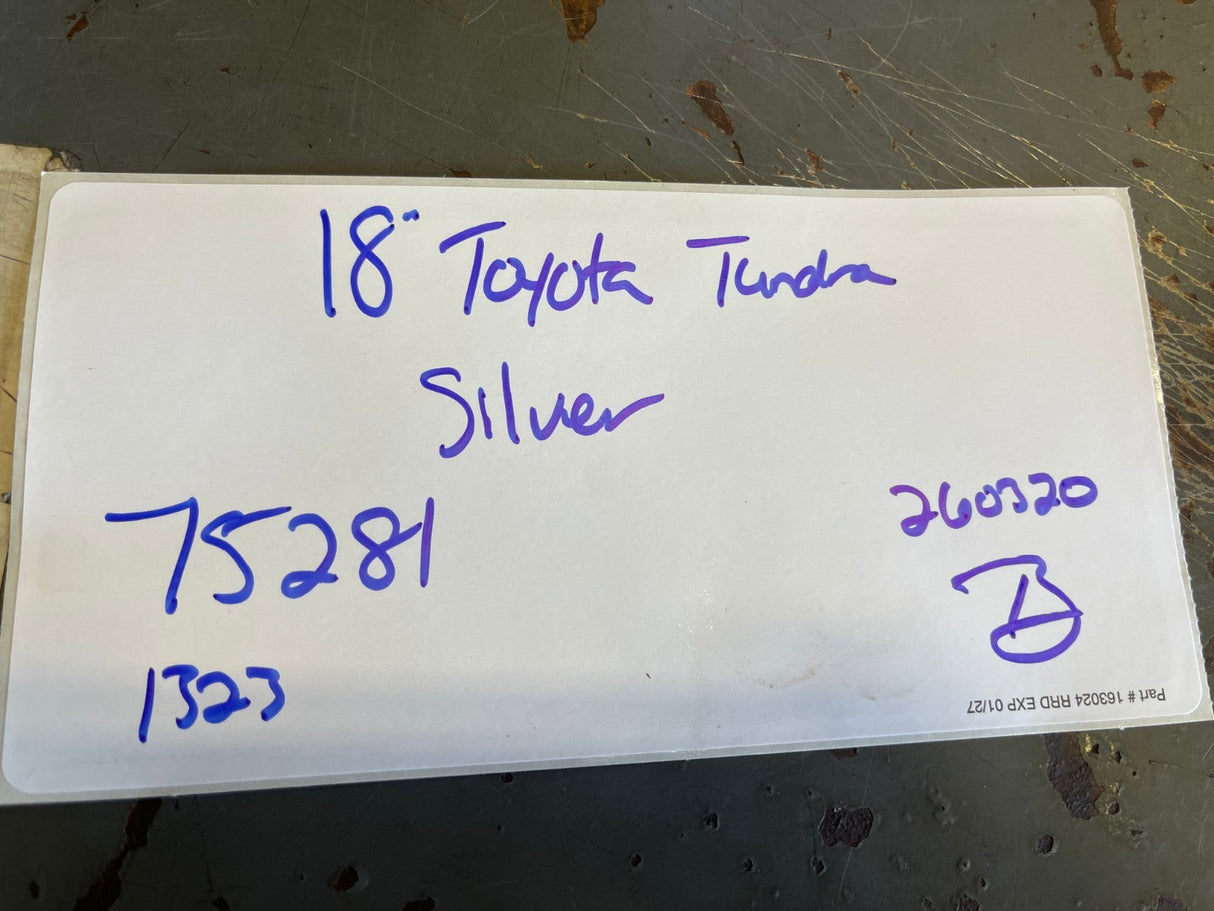 18" Toyota Tundra
Silver
75281
260320
B
1323
Part # 163024 RRD EXP 01/27